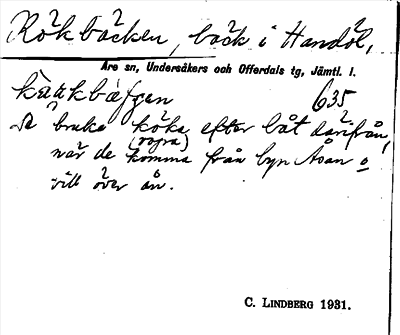 Rökbäcken, bäck i Handöl,
Åre sn, Undersåkers och Offerdals tg, Jämtl. l.
635
De bruka köka efter båt därifrån,
(ropa)
när de komma från byn Åsan o
vill över ån.
C. LINDBERG 1931.